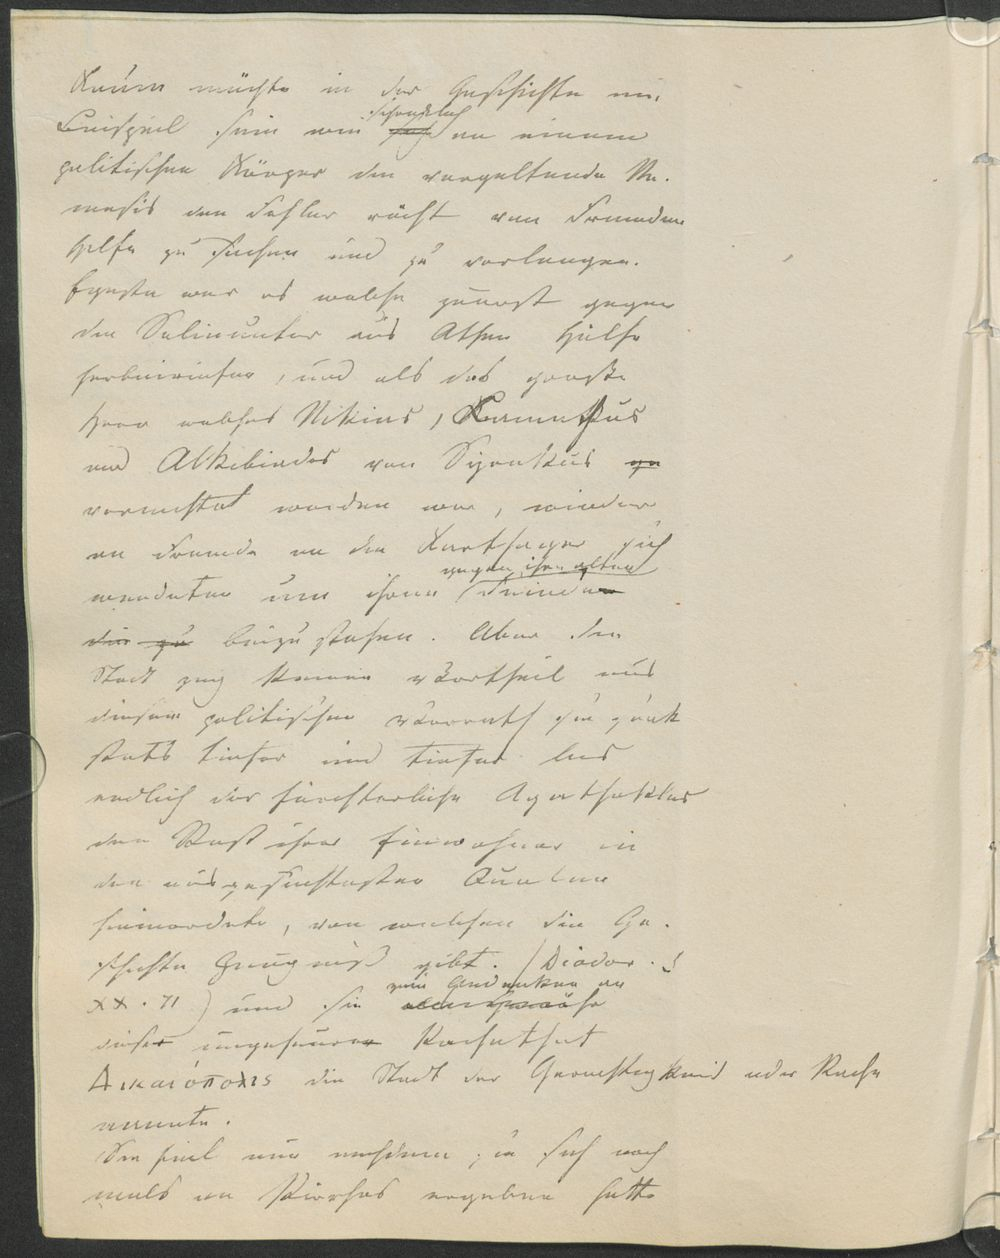 Kaum möchte in der Geschichte ein
Beispiel sein wie schrecklich an einem
politischen Körper die vergeltende Ne-
mesis den Fehler rächt von Fremden
Hilfe zu suchen und zu verlangen.
Egesta war es welche zuerst gegen
die Selinunter aus Athen Hülfe
herbeirief, und als das große
Heer welches Nikias, Lamachus
und Alkibiades von Syrakus
vernichtet worden war, wieder
an Fremde an die Karthager sich
gegen ihre alten
wendeten um ihnen Feinde
die zu beizustehen. Aber die
Stadt zog keinen Vortheil aus
diesem politischen Verrath sie sank
stets tiefer und tiefer bis
endlich der fürchterliche Agathokles
den Rest ihrer Einwohner in
den ausgesuchtesten Qualen
hinmordete, von welchen die Ge-
schichte Zeugniß gibt. (Diodor.
XX. 71) und sie zum Andenken an
dieser ungeheueren Rachethat
Δικαιόπολις die Stadt der Gerechtigkeit oder Rache
nannte.
Sie fiel nun nachdem sie sich noch
mals an Pirrhus ergeben hatte